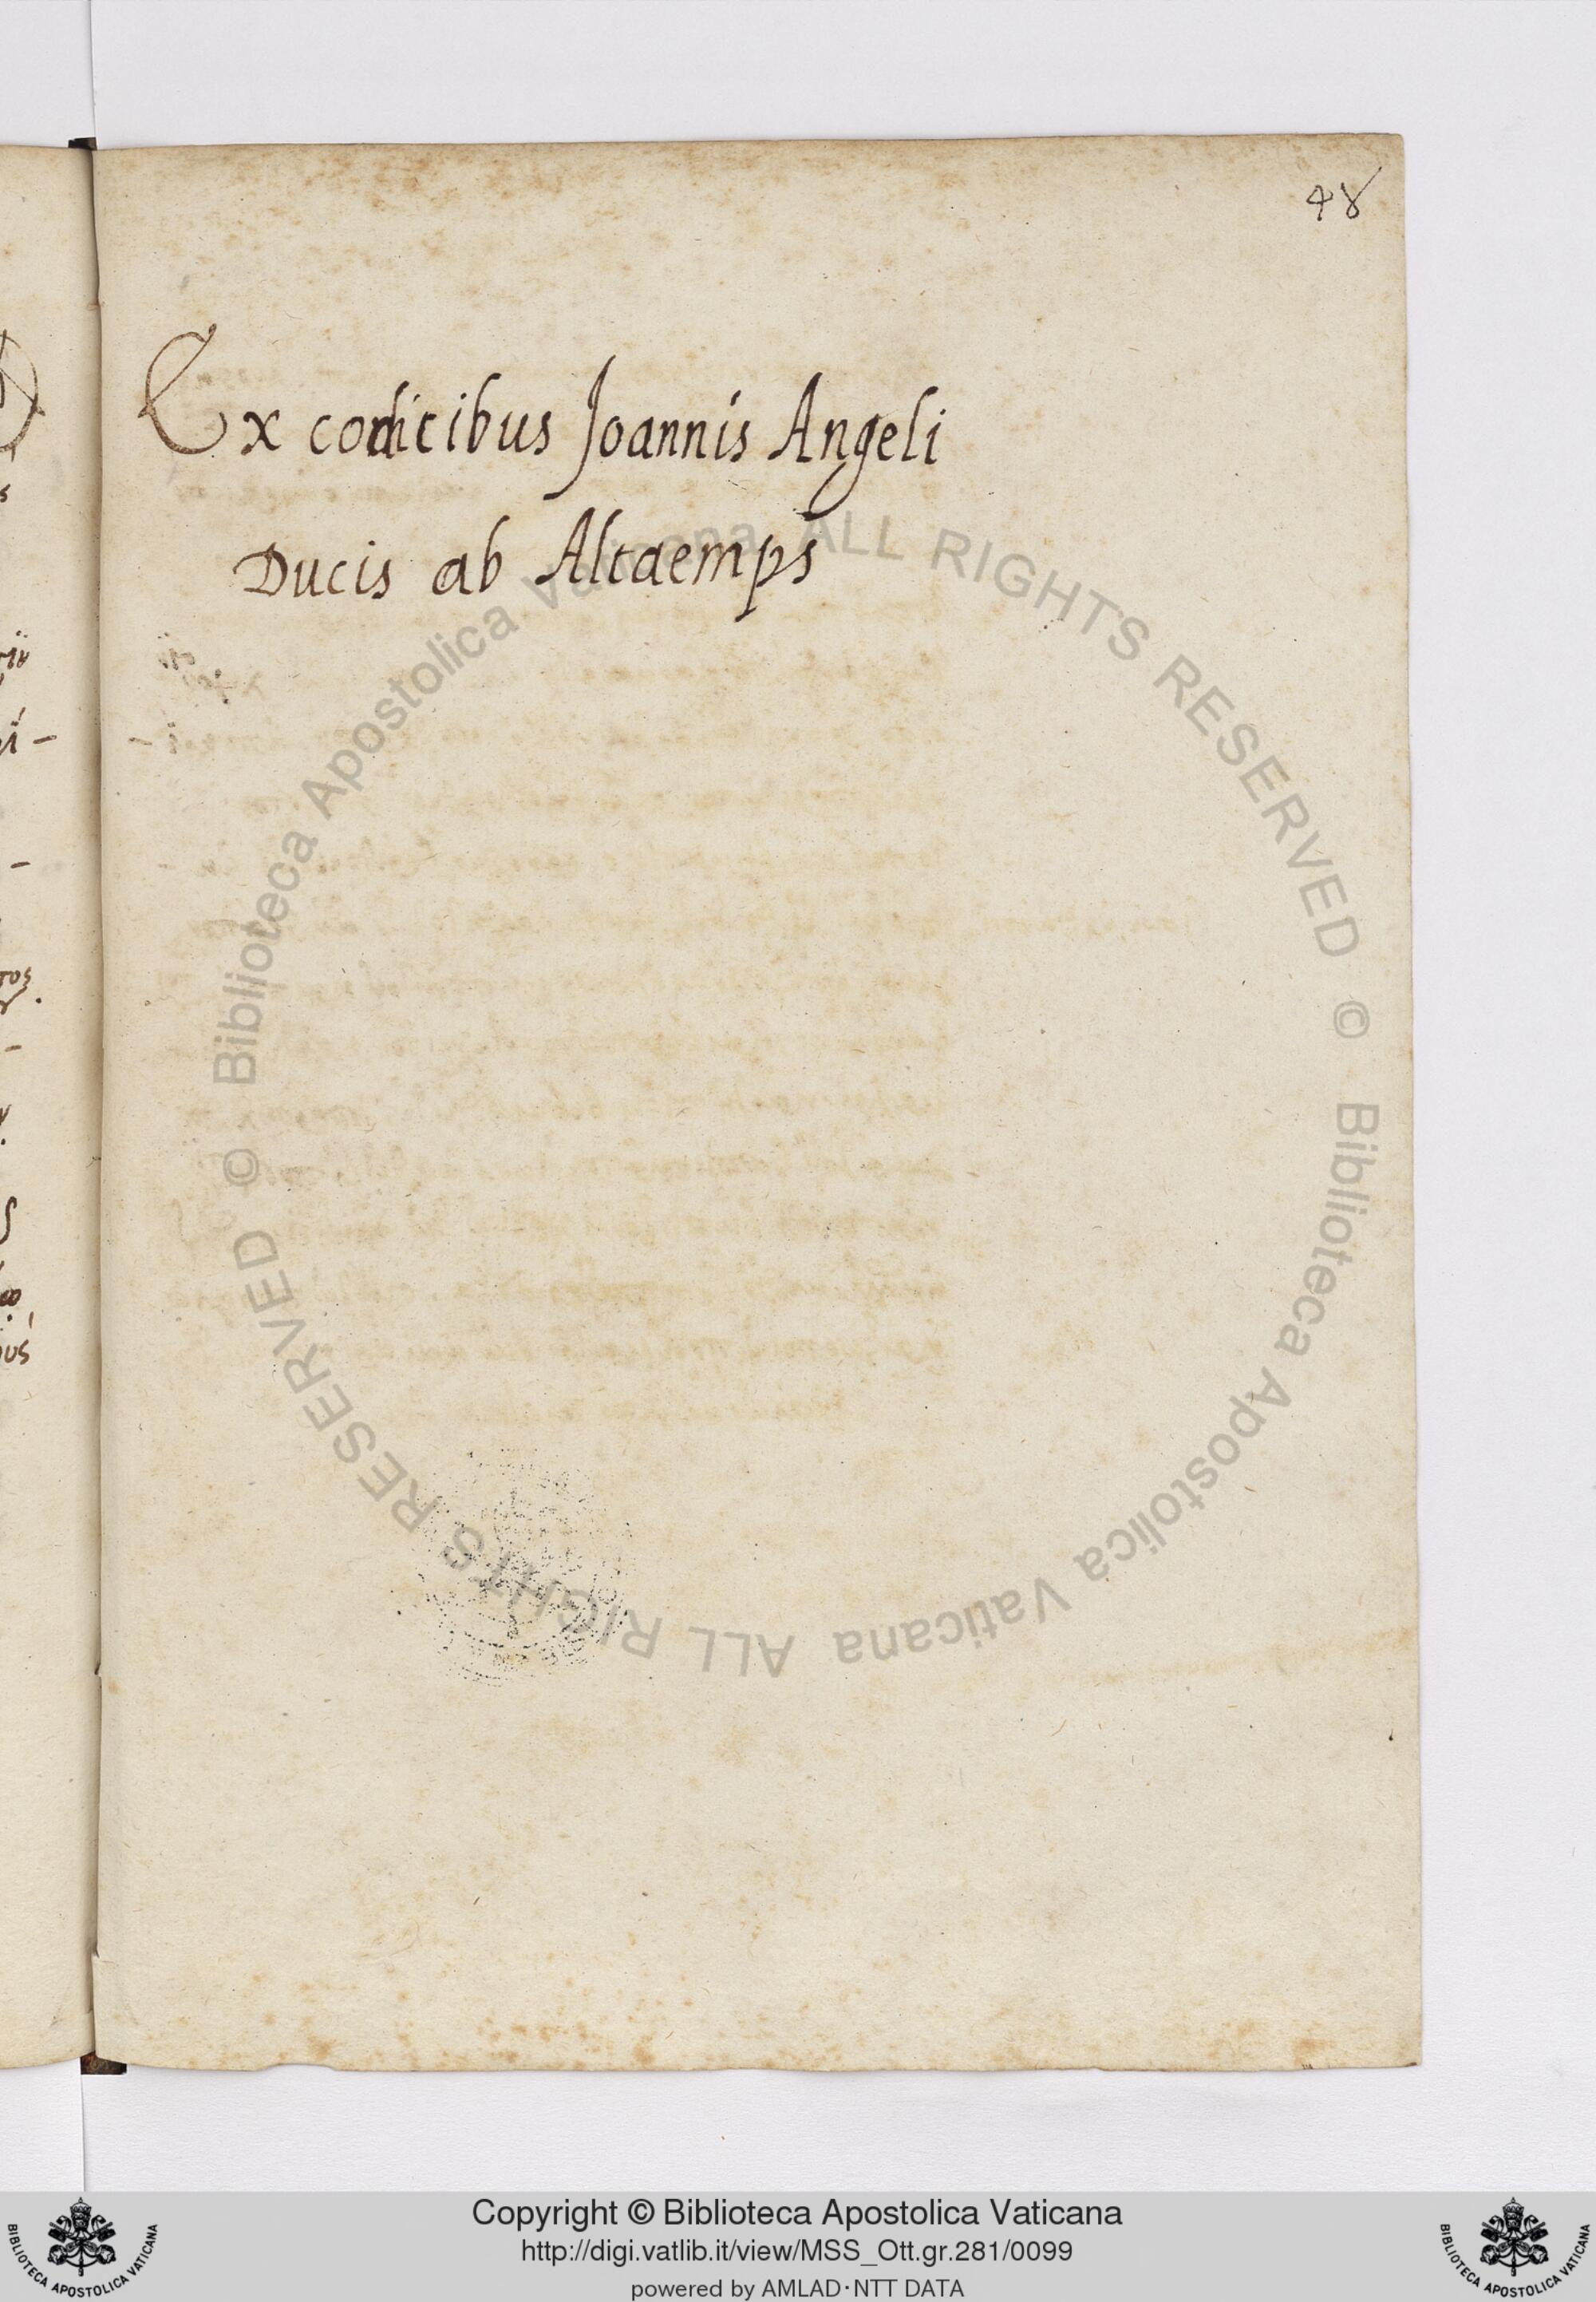 48
Ex codicibus Joannis Angeli
Ducis ab Altaemps
© Biblioteca Apostolica Vaticana ALL RIGHTS RESERVED © Biblioteca Apostolica Vaticana ALL RIGHTS RESERVED
Copyright © Biblioteca Apostolica Vaticana
http://digi.vatlib.it/view/MSS_Ott.gr.281/0099
powered by AMLAD·NTT DATA
BIBLIOTECA APOSTOLICA VATICANA
BIBLIOTECA APOSTOLICA VATICANA